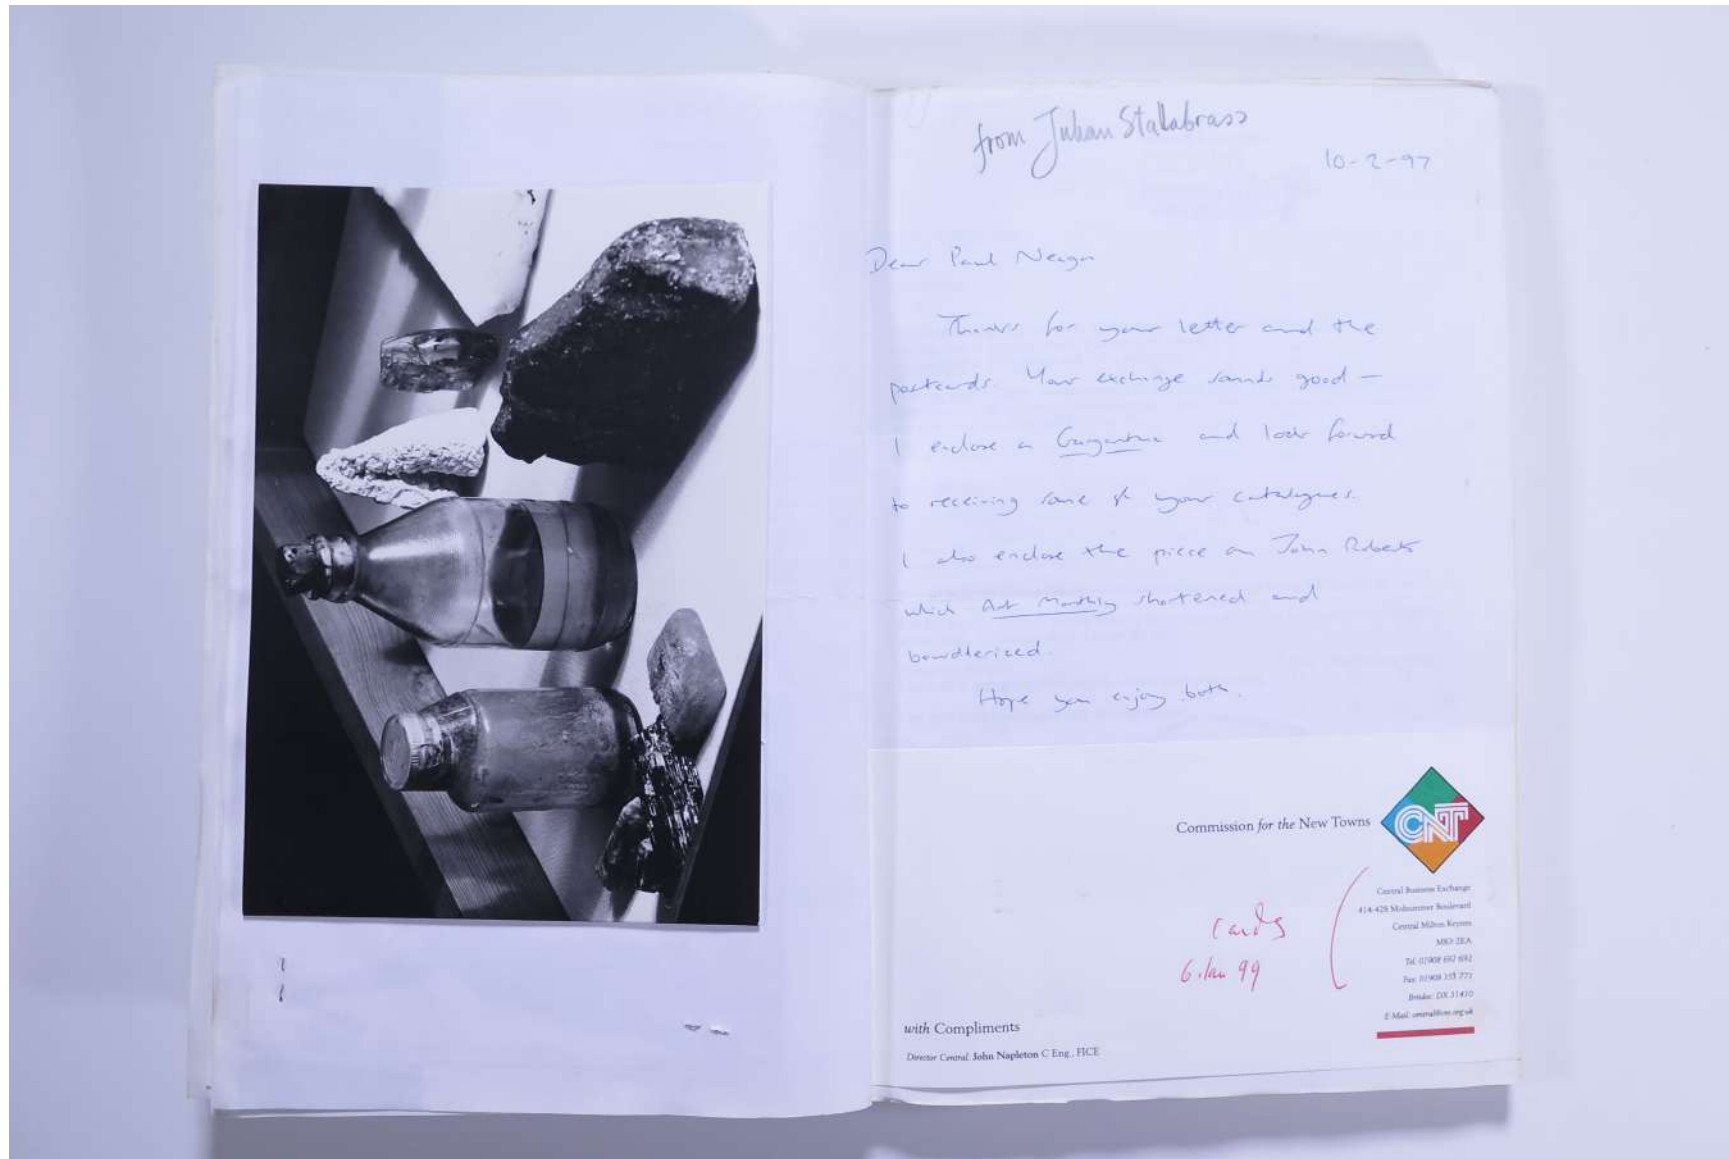 from Julian Stallabrass
10-2-97
Dear Paul Neagu
Thanks for your letter and the
postcards. Your exchange sounds good —
I enclose a Gargantua and look forward
to receiving some of your catalogues.
I also enclose the piece on John Roberts
which Art Monthly shortened and
bowdlerized.
Hope you enjoy both.
Commission for the New Towns
CNT
Central Business Exchange
414-428 Midsummer Boulevard
Central Milton Keynes
MK9 2EA
Tel: 01908 692 692
Fax: 01908
Britdoc: DX 31410
E-Mail: central@cnt.org.uk
cards
6 Jan 99
with Compliments
Director Central: John Napleton C Eng., FICE